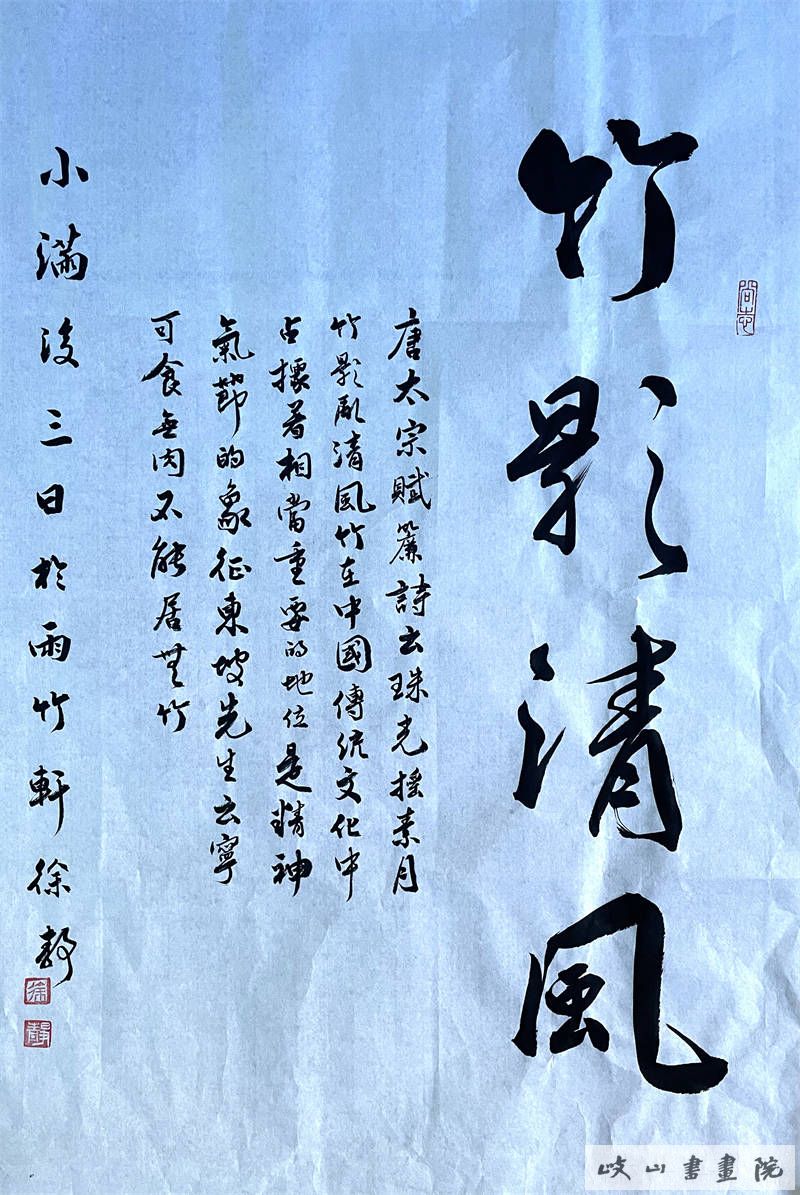 竹影清風
唐太宗賦簾詩云珠光摇素月
竹影亂清風竹在中國傳統文化中
占據着相當重要的地位是精神
氣節的象征東坡先生云寧
可食無肉不能居無竹
小滿後三日於雨竹軒徐靜
尚志
徐
靜
岐山書畫院